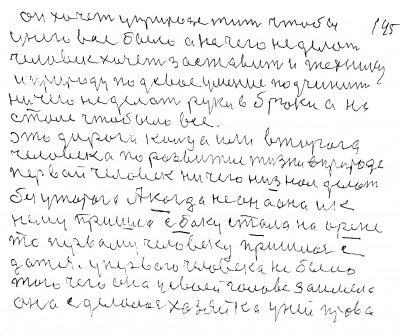 он хочет у природе жить чтобы 145
у него все было а начего не делат
человек хочет заставит и технику
и природу под свое умение подчинит
ничего не делат руки в брюки а на
столе чтоб ыло все.
это дорога кому или
человека по развитии жизни в природе
первай человек ничего низнал делат
без уторога А когда не он а она и к
нему пришла с боку стала на арене
то перваму человеку пришлоя с
датся. у первого человека не было
того чего она у своей голове заимела
она сделалоя хозяйка у ней права